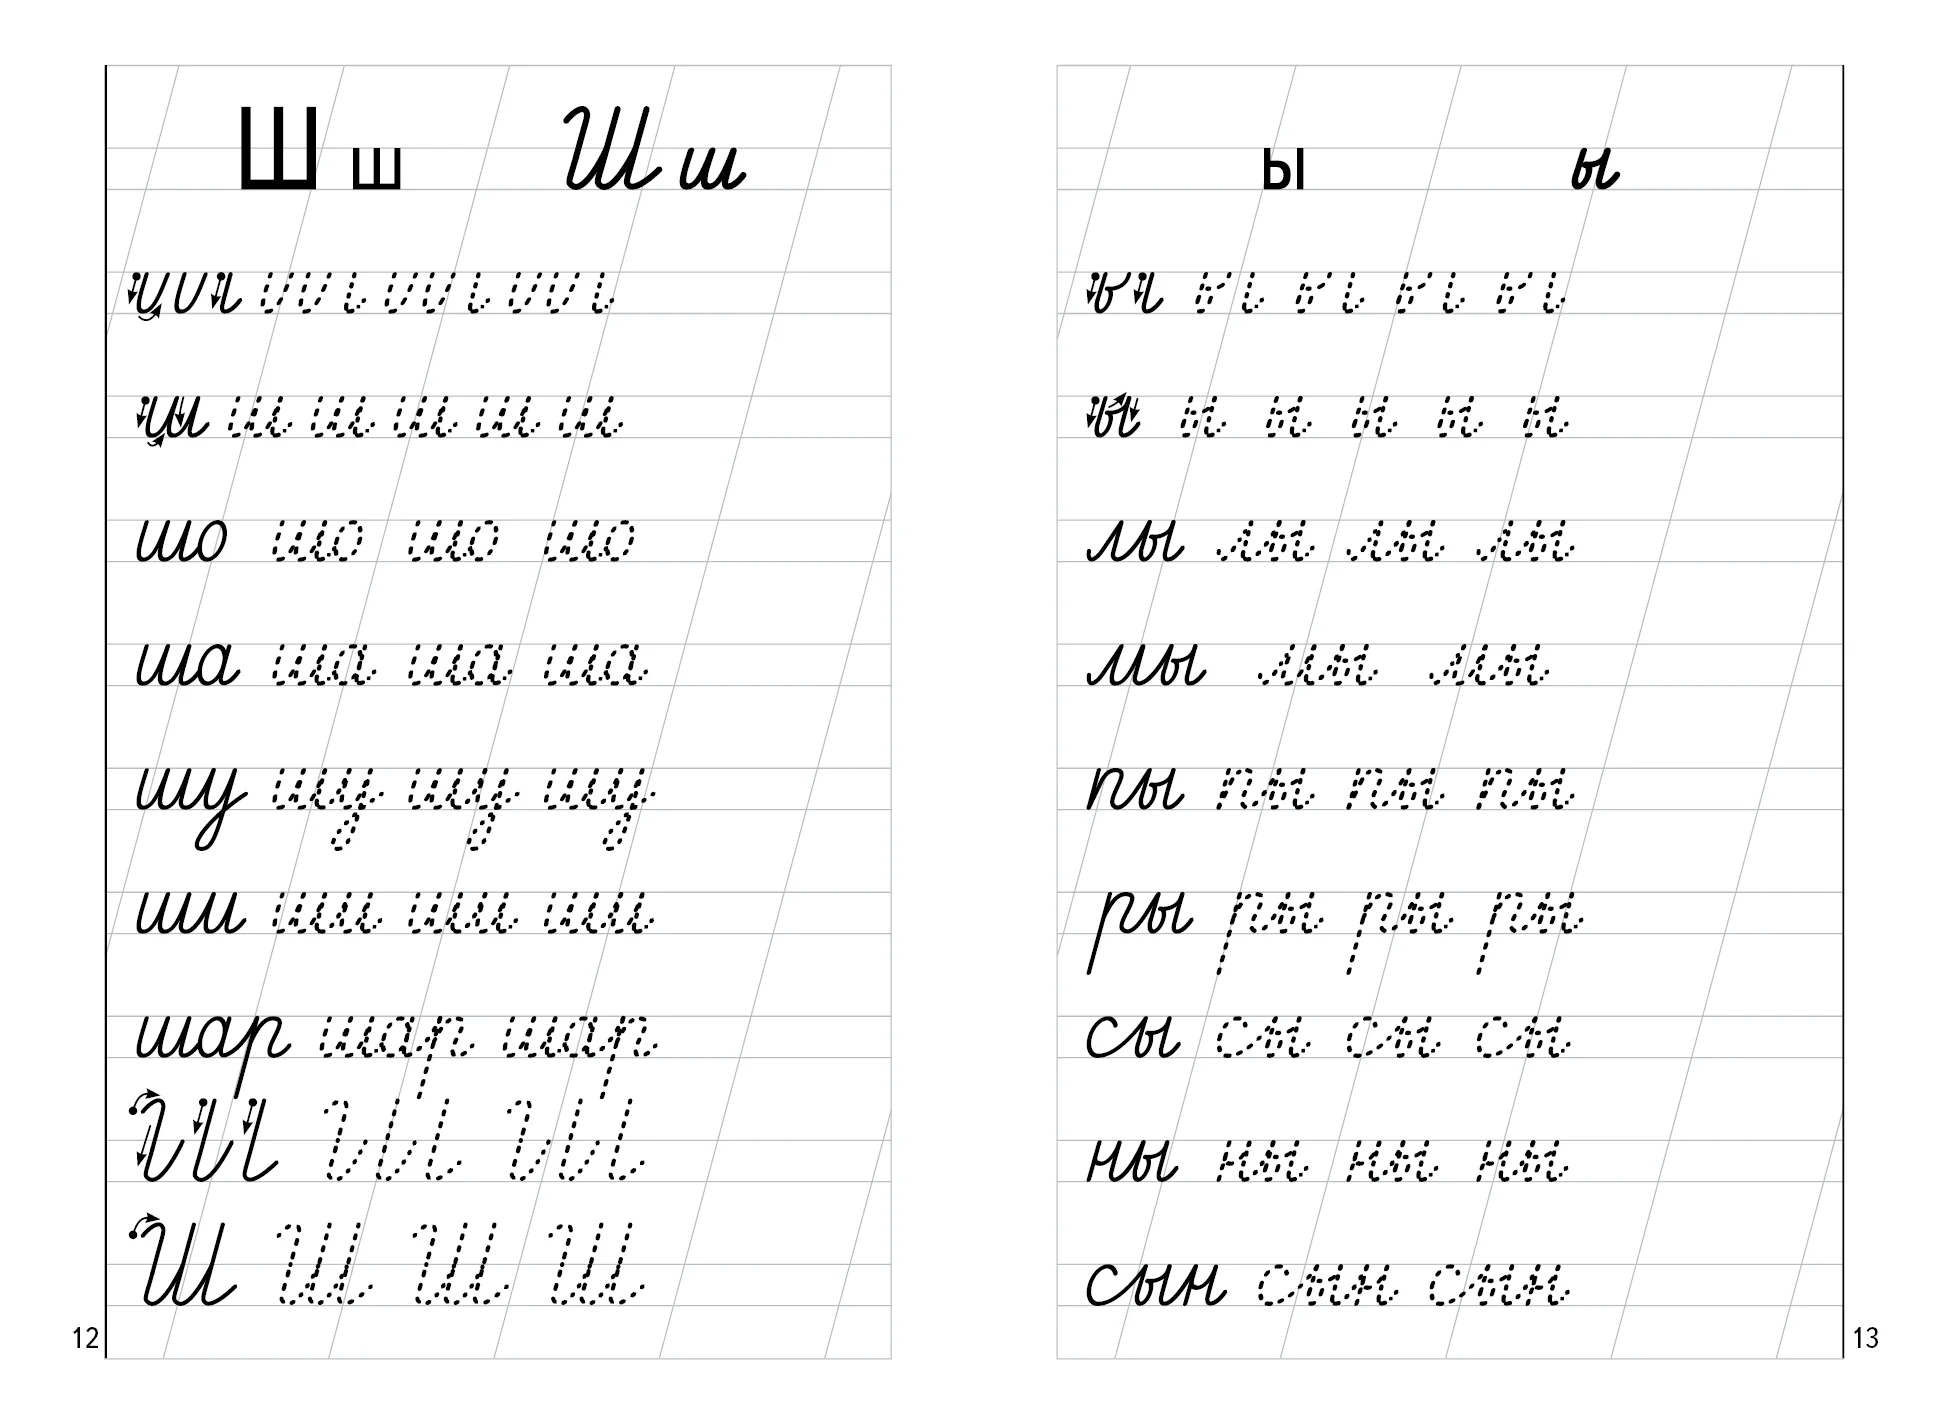 Ш ш Ш ш
ш ш ш ш
ш ш ш ш ш ш
шо шо шо шо
ша ша ша ша
шу шу шу шу
ши ши ши ши
шар шар шар
Ш Ш Ш
Ш Ш Ш Ш
12
ы ы
ы ы ы ы ы
ы ы ы ы ы ы
лы лы лы лы
мы мы мы
пы пы пы пы
ры ры ры ры
сы сы сы сы
ны ны ны ны
сын сын сын
13